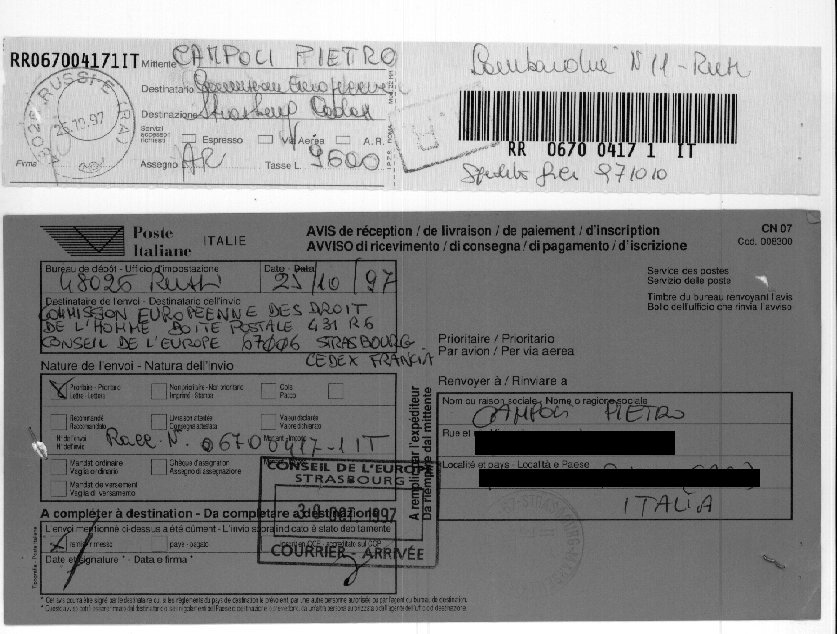 RR067004171IT Mittente CAMPOLI PIETRO
Destinatario
Destinazione Strasburg Cedex
Servizi accessori richiesti Espresso Via Aerea A.R.
Assegno AR Tasse L. 9600
Firma
48026 RUSSI-E (RA)
25.10.97
N 11 - Russi
RR 0670 0417 1 IT
Poste Italiane ITALIE
AVIS de réception / de livraison / de paiement / d'inscription
AVVISO di ricevimento / di consegna / di pagamento / d'iscrizione
CN 07
Cod. 008300
Bureau de dépôt - Ufficio d'impostazione
48026 Russi
Date - Data
25/10/97
Service des postes
Servizio delle poste
Timbre du bureau renvoyant l'avis
Bollo dell'ufficio che rinvia l'avviso
Destinataire de l'envoi - Destinatario dell'invio
COMMISSION EUROPEENNE DES DROIT
DE L'HOMME BOITE POSTALE 431 R6
CONSEIL DE L'EUROPE 67006 STRASBOURG
CEDEX FRANCIA
Prioritaire / Prioritario
Par avion / Per via aerea
Nature de l'envoi - Natura dell'invio
Prioritaire - Prioritario
Lettre - Lettera
Non prioritaire - Non prioritario
Imprimé - Stampe
Colis
Pacco
Recommandé
Raccomandato
Livraison attestée
Consegna attestata
Valeur déclarée
Valore dichiarato
N° de l'envoi
N° dell'invio
Racc. N. 06700417-1 IT
Mandat ordinaire
Vaglia ordinario
Chèque d'assignation
Assegno di assegnazione
Mandat de versement
Vaglia di versamento
A remplir par l'expéditeur
Da riempire dal mittente
Renvoyer à / Rinviare a
Nom ou raison sociale - Nome o ragione sociale
CAMPOLI PIETRO
Rue et
Localité et pays - Località e Paese
ITALIA
CONSEIL DE L'EUROPE
STRASBOURG
30 OCT. 1997
COURRIER - ARRIVÉE
A compléter à destination - Da completare a destinazione
L'envoi mentionné ci-dessus a été dûment - L'invio sopraindicato è stato debitamente
remis - rimesso
payé - pagato
inscrit en CCP - accreditato sul CCP
Date et signature * - Data e firma *
* Cet avis pourra être signé par le destinataire ou, si les règlements du pays de destination le prévoient, par une autre personne autorisée ou par l'agent du bureau de destination.